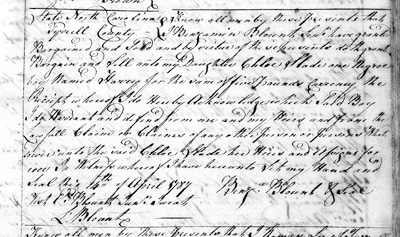 State North Carolina Know all men by these Presents that
Tyrrell County I Benjamin Blount have given
Bargained and Sold and by virtue of these presents do grant
Bargain and Sell unto my Daughter Chloe Slade one Negroe
boy Named Harvey for the Sum of five Pounds Currency the
Receipt whereof I do Hereby Acknowledge which Said Boy
I do Warrant and defend from me and my Heirs and from the
Lawfull Claim or Claims of any other Person or Persons
unto the said Chloe Slade her Heirs and Assigns for
ever In Witness whereof I have hereunto Set my Hand and
Seal this 14th of April 1787 Benja Blount Seal
Test
Blount
Know all men by these Presents that I